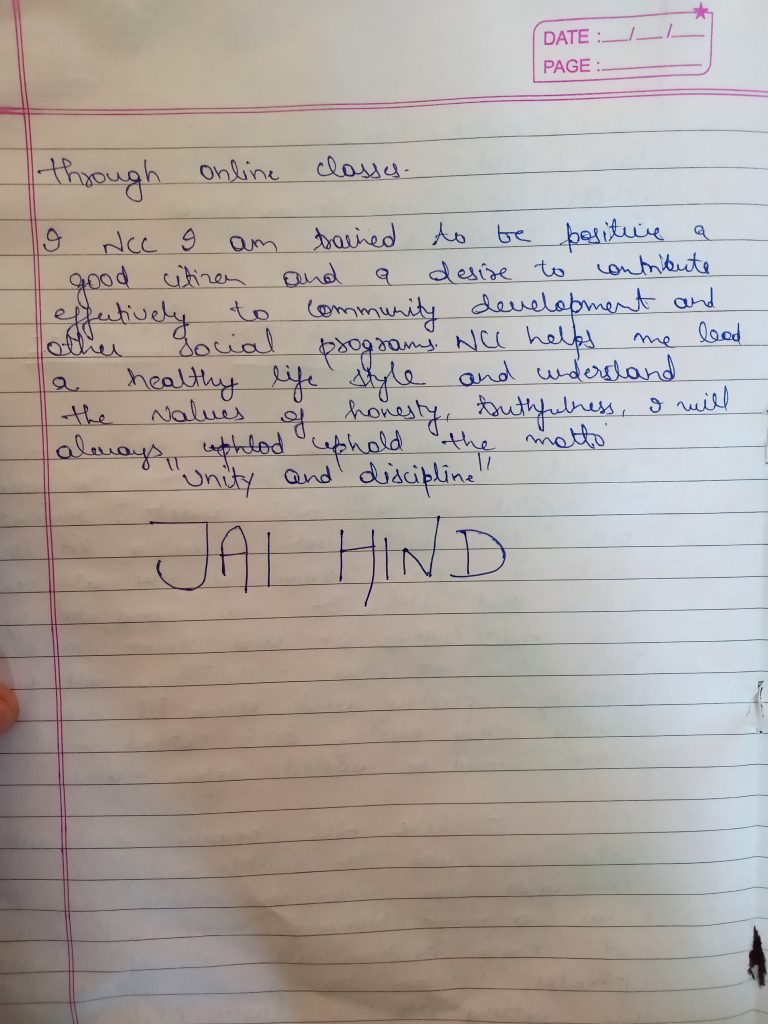 DATE :__/__/__
PAGE :________
through online classes.
I NCC I am trained to be positive a
good citizen and a desire to contribute
effectively to community development and
other social programs. NCC helps me lead
a healthy life style and understand
the values of honesty, truthfulness, I will
always uphlod uphold the motto
"Unity and discipline"
JAI HIND